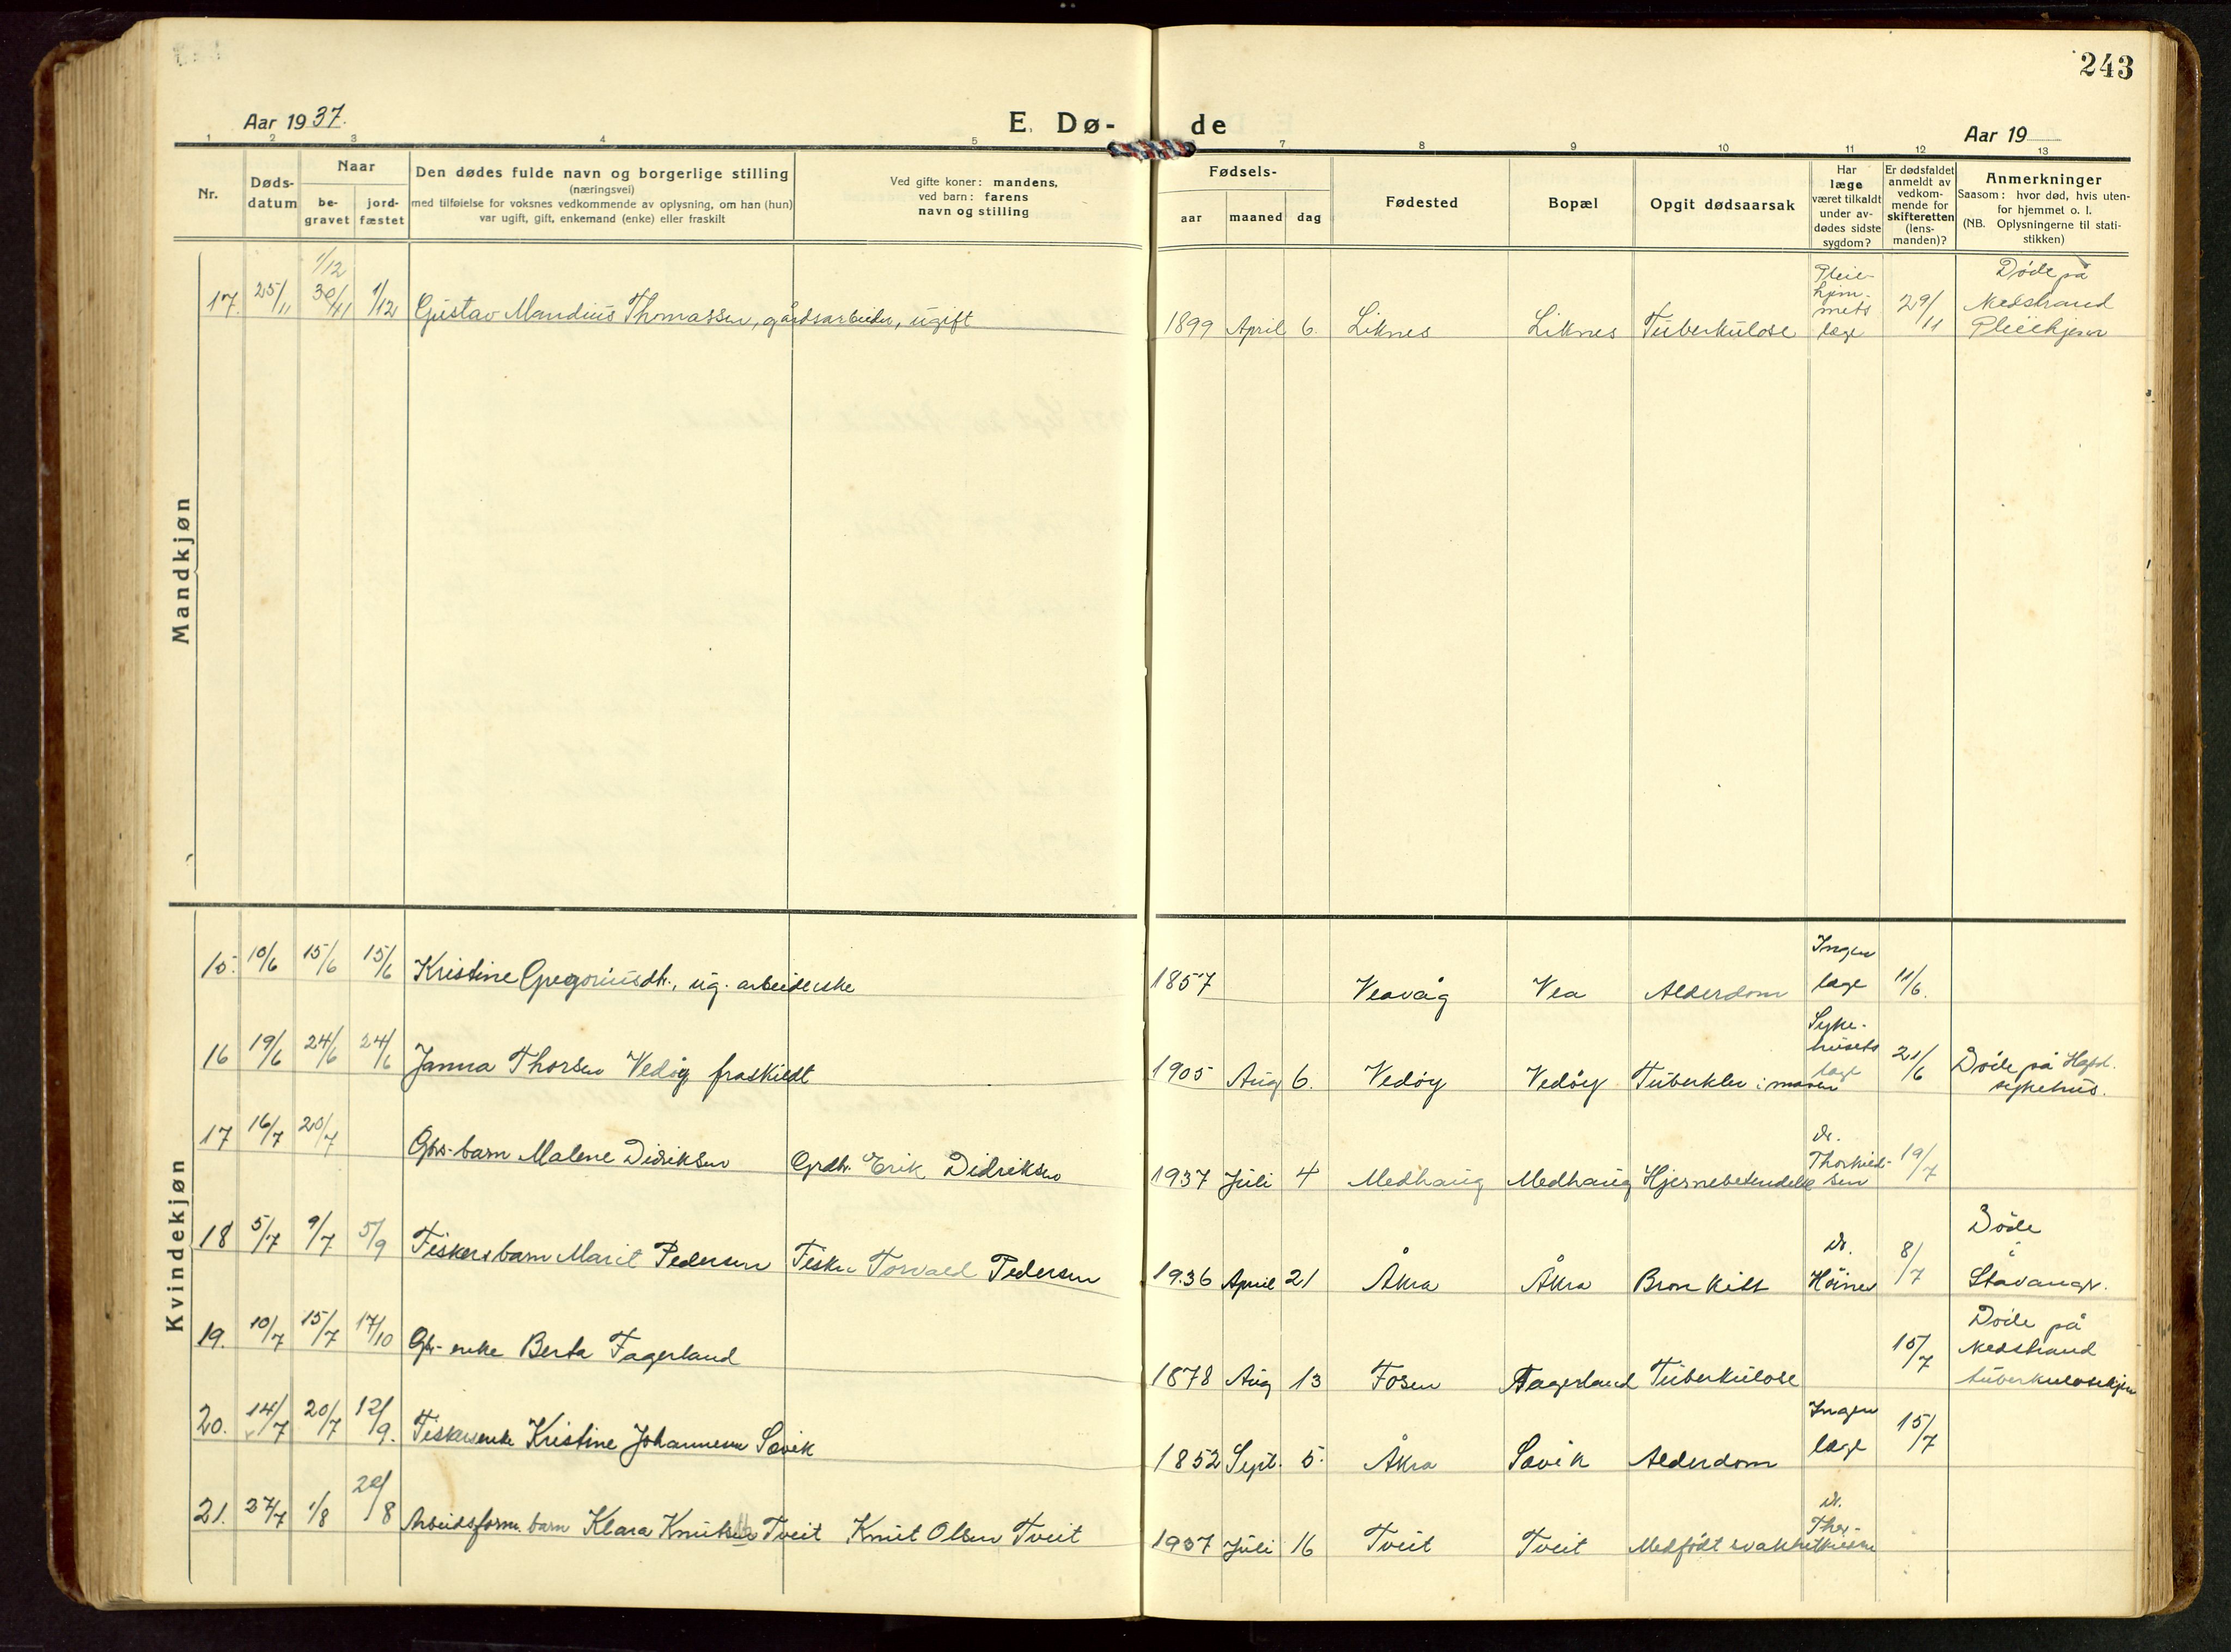 243
Aar 1937.
E. Dø- de
Aar 19
1 2 3 4 5 7 8 9 10 11 12 13
Nr.
Døds-
datum
Naar
be-
gravet
jord-
fæstet
Den dødes fulde navn og borgerlige stilling
(næringsvei)
med tilføielse for voksnes vedkommende av oplysning, om han (hun)
var ugift, gift, enkemand (enke) eller fraskilt
Ved gifte koner: mandens,
ved barn: farens
navn og stilling
Fødsels-
aar maaned dag
Fødested
Bopæl
Opgit dødsaarsak
Har
læge
været tilkaldt
under av-
dødes sidste
sygdom?
Er dødsfaldet
anmeldt av
vedkom-
mende for
skifteretten
(lens-
manden)?
Anmerkninger
Saasom: hvor død, hvis uten-
for hjemmet o. l.
(NB. Oplysningerne til stati-
stikken)
Mandkjøn
1/12
17. 25/11 30/11 1/12 Gustav Mandius Thomassen, gårdsarbeider, ugift 1899 April 6. Liknes Liknes Tuberkulose Pleie-
hjem-
mets
læge 29/11 Døde på
Nedstrand
Pleiehjem
Kvindekjøn
15. 10/6 15/6 15/6 Kristine Gregoriusdt., ug. arbeiderske 1857 Veavåg Vea Alderdom Ingen
læge 11/6.
16 19/6 24/6 24/6 Janna Thorsen Vedøy fraskildt 1905 Aug 6. Vedøy Vedøy Tuberkler i maven Syke-
husets
læge 21/6 Døde på Hgsd.
sykehus.
17 16/7 20/7 Gbr-barn Malene Didriksen Grdbr. Erik Didriksen 1937 Juli 4 Medhaug Medhaug Hjernebetendelse dr.
Thorkild-
sen 19/7
18 5/7 9/7 5/9 Fiskersbarn Marit Pedersen Fisker Torvald Pedersen 1936 April 21 Åkra Åkra Bronkitt dr.
8/7 Døde
i
Stavanger.
19. 10/7 15/7 17/10 Gbr-enke Berta Fagerland 1878 Aug 13 Fosen Fagerland Tuberkulose 15/7 Døde på
Nedstrand
tuberkulosehjem
20. 14/7 20/7 12/9. Fiskerenke Kristine Johannesen Sævik 1852 Sept. 5. Åkra Sævik Alderdom Ingen
læge 15/7
21. 27/7 1/8 29/8 Arbeidsform. barn Klara Knutsen Tveit Knut Olsen Tveit 1937 Juli 16 Tveit Tveit Medfødt svakhet dr.
Thor-